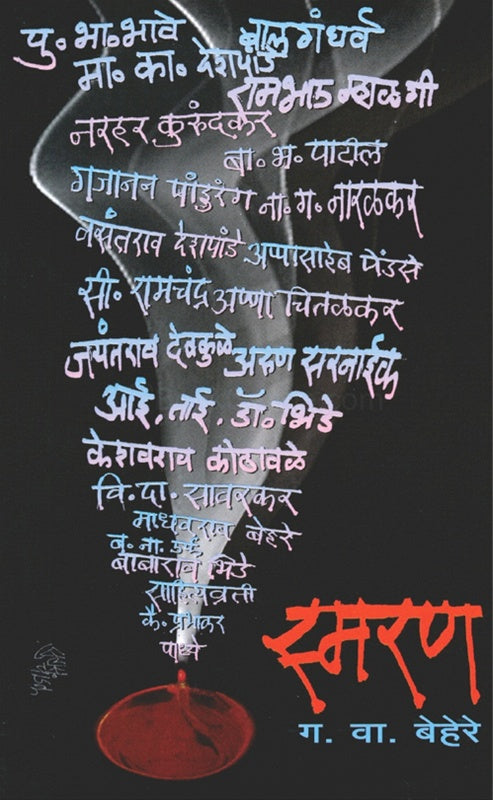 पु. भा. भावे बालगंधर्व
मा. का. देशपांडे
रामभाऊ म्हाळगी
नरहर कुरुंदकर
बा. भ. पाटील
गजानन पांडुरंग ना. ग. नारळकर
वसंतराव देशपांडे अप्पासाहेब पेंडसे
सी. रामचंद्र अण्णा चितळकर
जयंतराव देवकुळे अरुण सरनाईक
आई. ताई. डॉ. भिडे
केशवराव कोठावळे
वि. दा. सावरकर
माधवराव बेहेरे
बाबाराव भिडे
साहित्यव्रती
कै. प्रभाकर
पाध्ये
स्मरण
ग. वा. बेहेरे